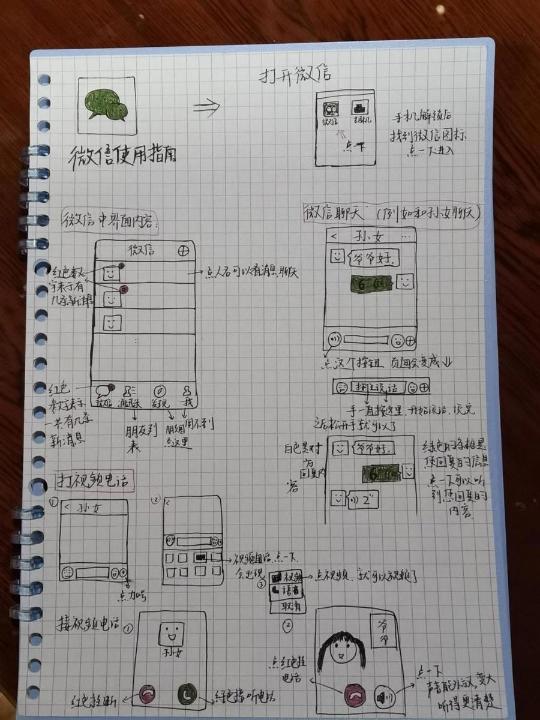 打开微信
微信使用指南
微信 手机
点一下
手机解锁后
找到微信图标
点一下进入
微信中界面内容:
微信
红色数
字表示有
几条新消息
点人名可以看消息、聊天
红色
数字表示
一共有几条
新消息
微信 通讯录 发现 我
朋友列
表
朋友圈
点这里
用不到
微信聊天(例如和孙女聊天)
< 孙女 ...
爷爷好.
点这个按钮 页面会变成↓
按住说话
手一直按这里,开始说话,说完
之后松开手就可以了
爷爷好.
2"
白色是对
方
回复内
容
绿色的条框是
您回复的信息
点一下可以听
到您回复的
内容.
打视频电话
①
< 孙女
点加号
②
视频通话点一下
会出现
③
视频
语音
取消
点视频,就可以视频了
接视频电话
①
孙女
红色挂断
绿色接听电话
②
爷
爷
点红色挂
电话
点一下
声音能外放、变大
听得更清楚